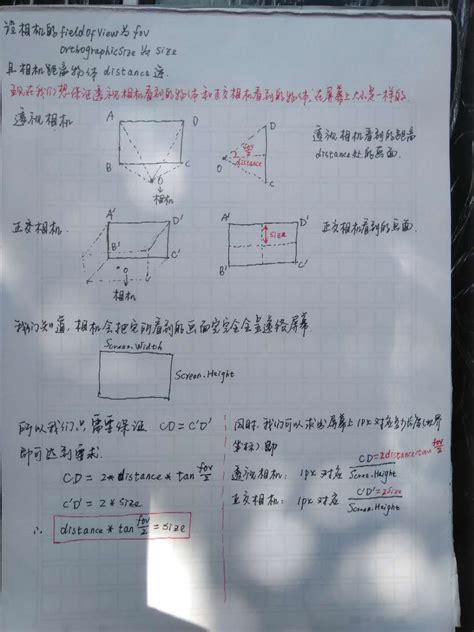 设相机的fieldOfView为fov
orthographicSize为size
且相机距离物体distance远.
现在我们想保证透视相机看到的物体和正交相机看到的物体,在屏幕上大小是一样的.
透视相机
A D
B C
O
相机
D
O 2 fov/2
distance
C
透视相机看到的距离
distance处的画面.
正交相机.
A' D'
B' C'
O
相机
A' D'
size
B' C'
正交相机看到的画面.
我们知道,相机会把它所看到的画面完完全全呈递给屏幕.
Screen.Width
Screen.Height
所以我们只需要保证 CD = C'D'
即可达到要求.
CD = 2*distance*tan fov/2
C'D' = 2*size
∴ distance*tan fov/2 = size
同时,我们可以求出屏幕上1px对应多少长度(世界
坐标)即
透视相机: 1px对应 CD=2distance·tan fov/2 / Screen.Height
正交相机: 1px对应 C'D'=2size / Screen.Height